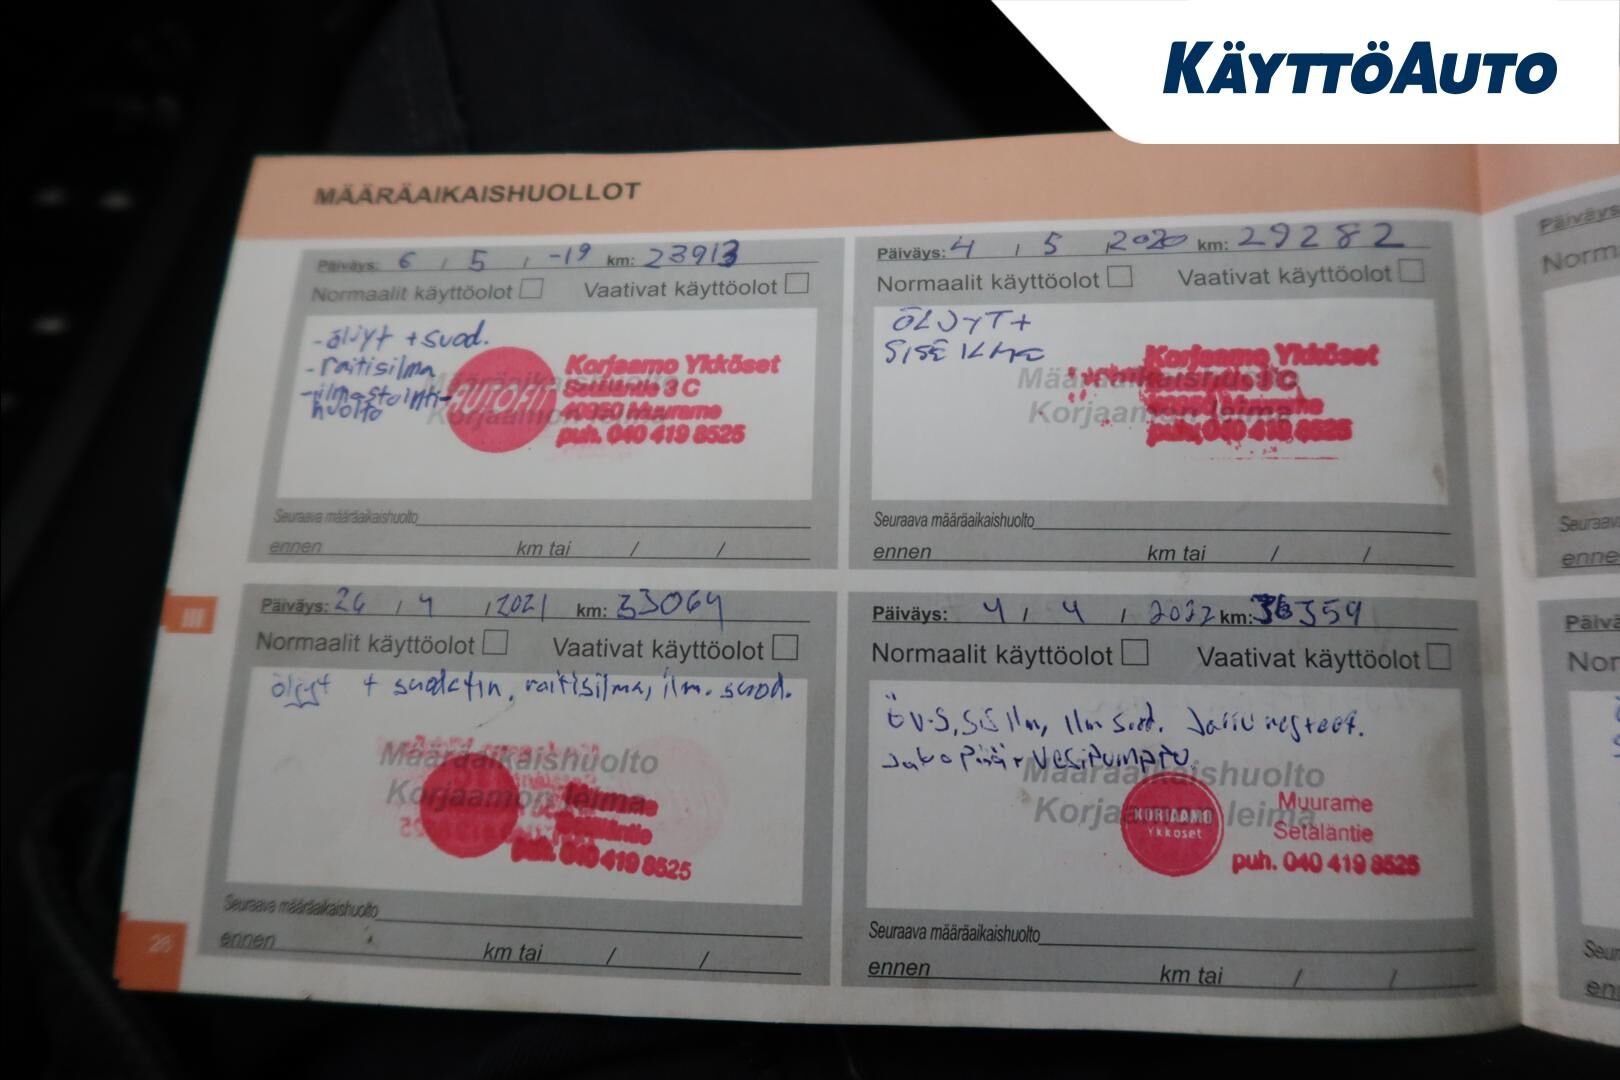 KÄYTTÖAUTO
MÄÄRÄAIKAISHUOLLOT
Päiväys: 6 / 5 / -19 km: 23913
Normaalit käyttöolot Vaativat käyttöolot
-öljyt + suod.
-raitisilma
-ilmastointi-
huolto
Määräaikaishuolto
Korjaamon leima
AUTOFIT
Korjaamo Ykköset
3 C
Muurame
puh. 040 419 8525
Seuraava määräaikaishuolto
ennen km tai / /
Päiväys: 4 / 5 / 2020 km: 29282
Normaalit käyttöolot Vaativat käyttöolot
ÖLJYT +
SISEILMA
Määräaikaishuolto
Korjaamon leima
Korjaamo Ykköset
3 C
Muurame
puh. 040 419 8525
Seuraava määräaikaishuolto
ennen km tai / /
III
Päiväys: 26 / 4 / 2021 km: 33064
Normaalit käyttöolot Vaativat käyttöolot
öljyt + suodatin, raitisilma, ilm. suod.
Määräaikaishuolto
Korjaamon leima
puh. 040 419 8525
Seuraava määräaikaishuolto
ennen km tai / /
26
Päiväys: 4 / 4 / 2022 km: 36359
Normaalit käyttöolot Vaativat käyttöolot
ÖV-S, SIS Ilm, Ilm suod. Jarrunesteet.
Jakopää + Vesipumppu
Määräaikaishuolto
Korjaamon leima
KORJAAMO
Ykköset
Muurame
Setäläntie
puh. 040 419 8525
Seuraava määräaikaishuolto
ennen km tai / /
Päiväys
Norm
Seuraav
enne
Päivä
Nor
Seur
en